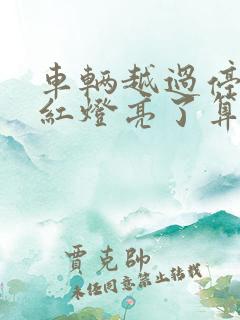 車輛越過停
紅燈亮了算
賈克帥
未經同意禁止轉載